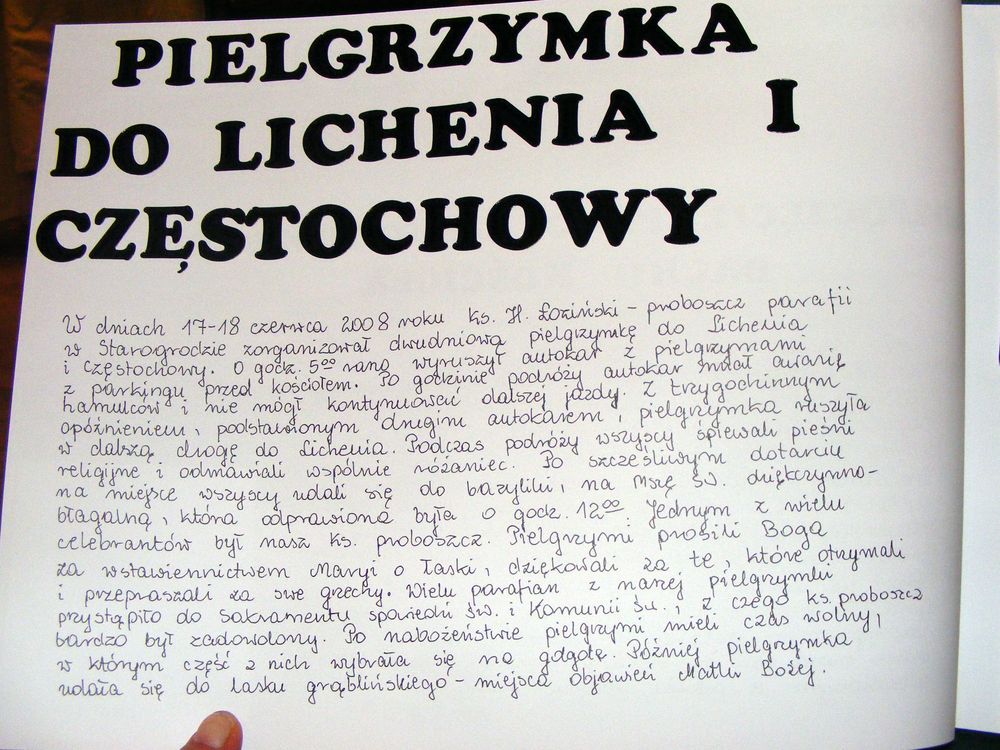 PIELGRZYMKA
DO LICHENIA I
CZĘSTOCHOWY
W dniach 17-18 czerwca 2008 roku ks. H. Łoziński - proboszcz parafii
w Starogrodzie zorganizował dwudniową pielgrzymkę do Lichenia
i Częstochowy. O godz. 5⁰⁰ rano wyruszył autokar z pielgrzymami
z parkingu przed kościołem. Po godzinie podróży autokar miał awarię
hamulców i nie mógł kontynuować dalszej jazdy. Z trzygodzinnym
opóźnieniem, podstawionym drugim autokarem, pielgrzymka ruszyła
w dalszą drogę do Lichenia. Podczas podróży wszyscy śpiewali pieśni
religijne i odmawiali wspólnie różaniec. Po szczęśliwym dotarciu
na miejsce wszyscy udali się do bazyliki, na Mszę św. dziękczynno-
błagalną, która odprawiona była o godz. 12⁰⁰ Jednym z wielu
celebrantów był nasz ks. proboszcz. Pielgrzymi prosili Boga
za wstawiennictwem Maryi o łaski, dziękowali za te, które otrzymali
i przepraszali za swe grzechy. Wielu parafian z naszej pielgrzymki
przystąpiło do Sakramentu spowiedzi św. i Komunii św., z czego ks. proboszcz
bardzo był zadowolony. Po nabożeństwie pielgrzymi mieli czas wolny,
w którym część z nich wybrała się na golgotę. Później pielgrzymka
udała się do lasku grąblińskiego - miejsca objawień Matki Bożej.